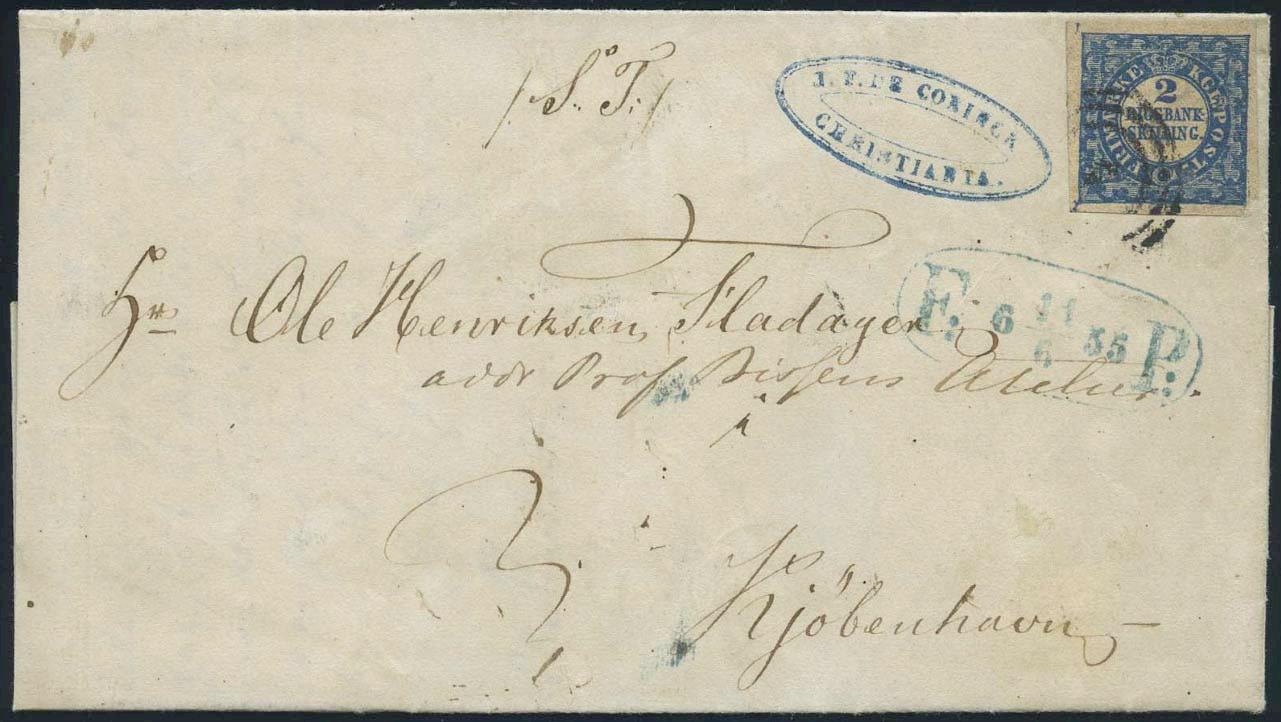 /: S. T. :/
J. F. DE CONINCK
CHRISTIANIA.
KGL POST FRIMÆRKE
2
RIGSBANK-
SKILLING.
F: 6 11/6 55 P:
Hr Ole Henriksen Fladager
addr Prof Bissens Atelier.
i
Kjöbenhavn